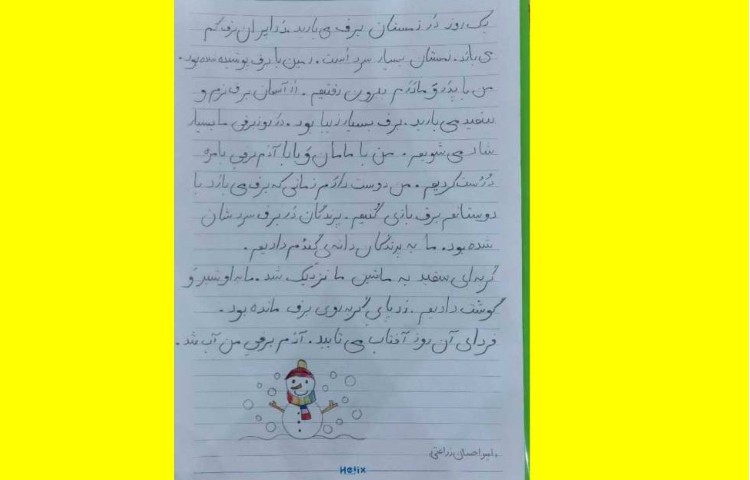 یک روز در زمستان برف می بارید. در ایران برف کم
می بارد. زمستان بسیار سرد است. زمین با برف پوشیده شده بود.
من با پدر و مادرم بیرون رفتیم. از آسمان برف نرم و
سفید می بارید. برف بسیار زیبا بود. در روز برفی ما بسیار
شاد می شویم. من با مامان و بابا آدم برفی بامزه
درست کردیم. من دوست دارم زمانی که برف می بارد با
دوستانم برف بازی کنیم. پرندگان در برف سردشان
شده بود. ما به پرندگان دانه ی گندم دادیم.
گربه ای سفید به ماشین ما نزدیک شد. ما به او شیر و
گوشت دادیم. رد پای گربه روی برف مانده بود.
فردای آن روز آفتاب می تابید. آدم برفی من آب شد.
امیراحسان زراعتی
Helix